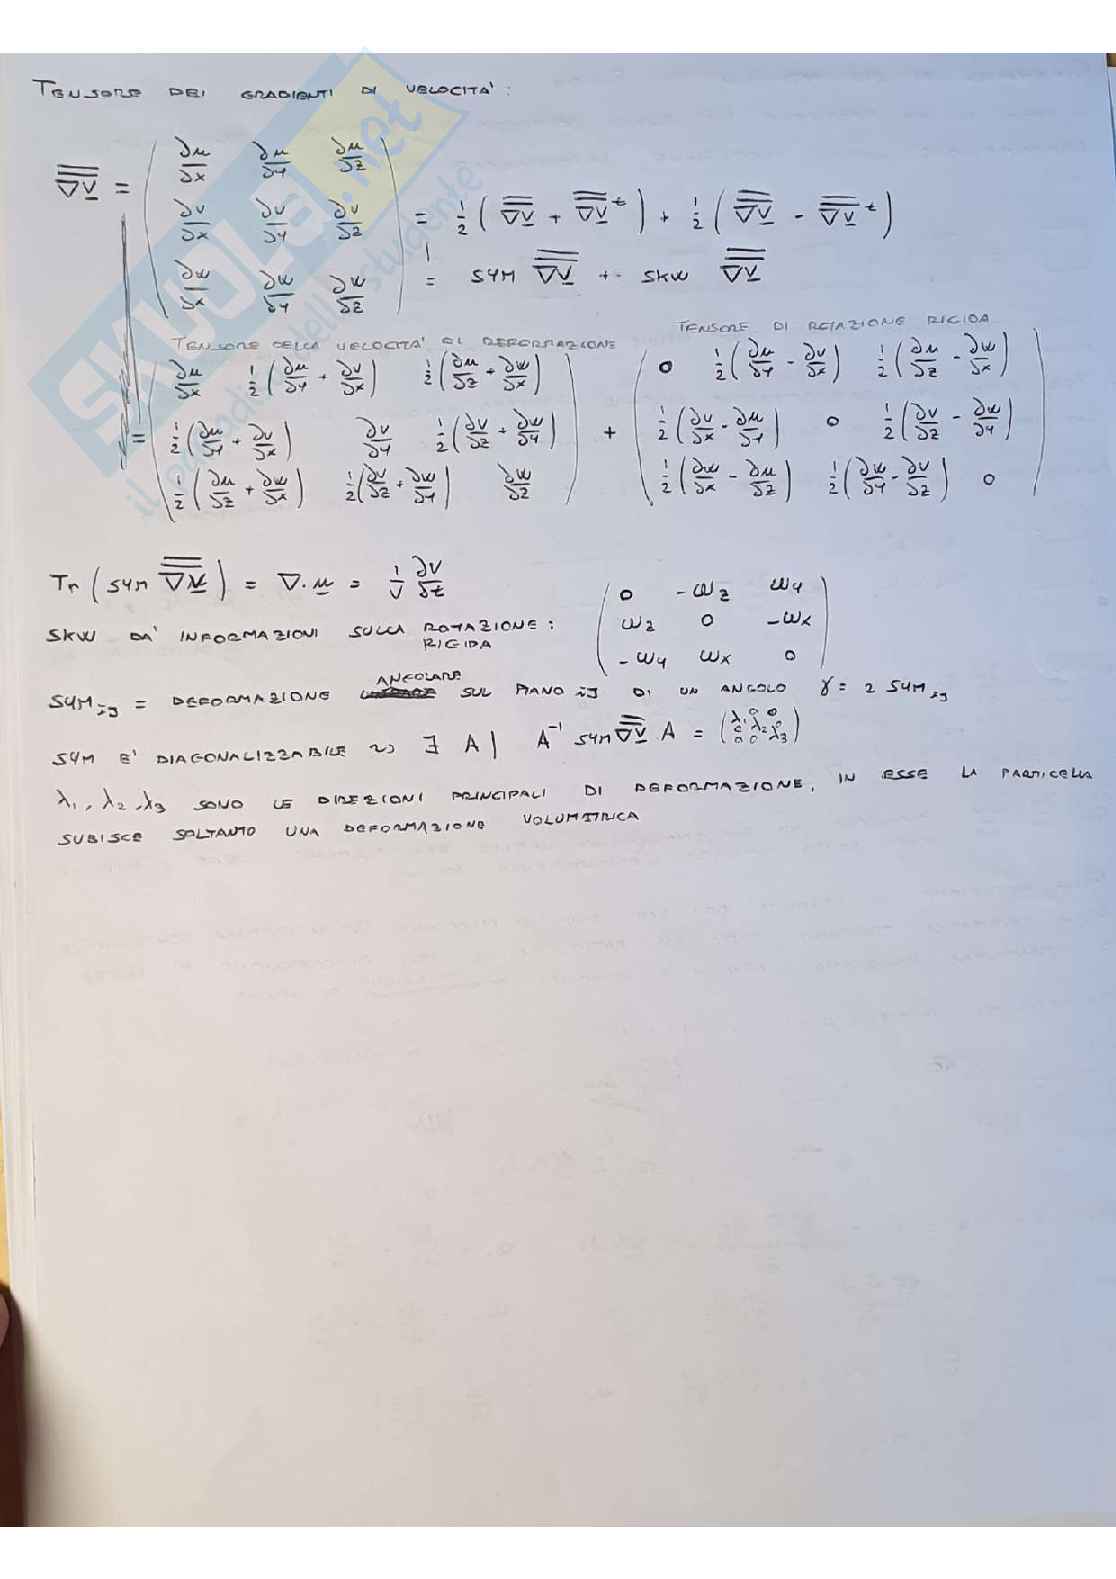 TENSORE DEI GRADIENTI DI VELOCITA':
∇V = ( ∂u/∂x ∂u/∂y ∂u/∂z
∂v/∂x ∂v/∂y ∂v/∂z
∂w/∂x ∂w/∂y ∂w/∂z ) = 1/2 ( ∇V + ∇V^t ) + 1/2 ( ∇V - ∇V^t )
= SYM ∇V + SKW ∇V
TENSORE DELLA VELOCITA' DI DEFORMAZIONE
TENSORE DI ROTAZIONE RIGIDA
= ( ∂u/∂x 1/2(∂u/∂y + ∂v/∂x) 1/2(∂u/∂z + ∂w/∂x)
1/2(∂u/∂y + ∂v/∂x) ∂v/∂y 1/2(∂v/∂z + ∂w/∂y)
1/2(∂u/∂z + ∂w/∂x) 1/2(∂v/∂z + ∂w/∂y) ∂w/∂z )
+ ( 0 1/2(∂u/∂y - ∂v/∂x) 1/2(∂u/∂z - ∂w/∂x)
1/2(∂v/∂x - ∂u/∂y) 0 1/2(∂v/∂z - ∂w/∂y)
1/2(∂w/∂x - ∂u/∂z) 1/2(∂w/∂y - ∂v/∂z) 0 )
Tr ( SYM ∇V ) = ∇·u = 1/V ∂V/∂t
SKW DA' INFORMAZIONI SULLA ROTAZIONE RIGIDA : ( 0 -ωz ωy
ωz 0 -ωx
-ωy ωx 0 )
SYM ij = DEFORMAZIONE ANGOLARE SUL PIANO ij DI UN ANGOLO γ = 2 SYM ij
SYM E' DIAGONALIZZABILE ~> ∃ A | A^-1 SYM ∇V A = ( λ1 0 0
0 λ2 0
0 0 λ3 )
λ1, λ2, λ3 SONO LE DIREZIONI PRINCIPALI DI DEFORMAZIONE, IN ESSE LA PARTICELLA
SUBISCE SOLTANTO UNA DEFORMAZIONE VOLUMETRICA
SKUOLA.net
il portale dello studente